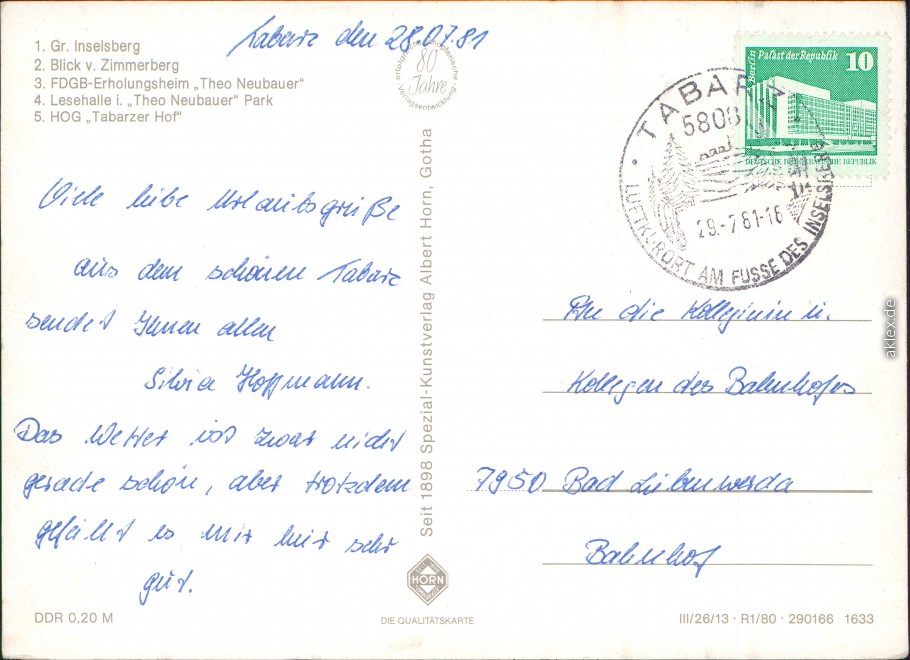 Tabarz den 28.07.81
1. Gr. Inselsberg
2. Blick v. Zimmerberg
3. FDGB-Erholungsheim „Theo Neubauer"
4. Lesehalle i. „Theo Neubauer" Park
5. HOG „Tabarzer Hof"
80
Jahre
erfolgreiche
Verlagsentwicklung
Berlin
Palast der Republik
10
DEUTSCHE DEMOKRATISCHE REPUBLIK
TABARZ
5808
29.-7.81-16
LUFTKURORT AM FUSSE DES INSELSBERGES
Viele liebe Urlaubsgrüße
aus dem schönen Tabarz
sendet Ihnen allen
Silvia Hoffmann.
Das Wetter ist zwar nicht
gerade schön, aber trotzdem
gefällt es mir hier sehr
gut.
Seit 1898 Spezial-Kunstverlag Albert Horn, Gotha
HORN
An die Kolleginin u.
Kollegen des Bahnhofes
7950 Bad Liebenwerda
Bahnhof
DDR 0,20 M
DIE QUALITÄTSKARTE
III/26/13 · R1/80 · 290166 1633
aklex.de